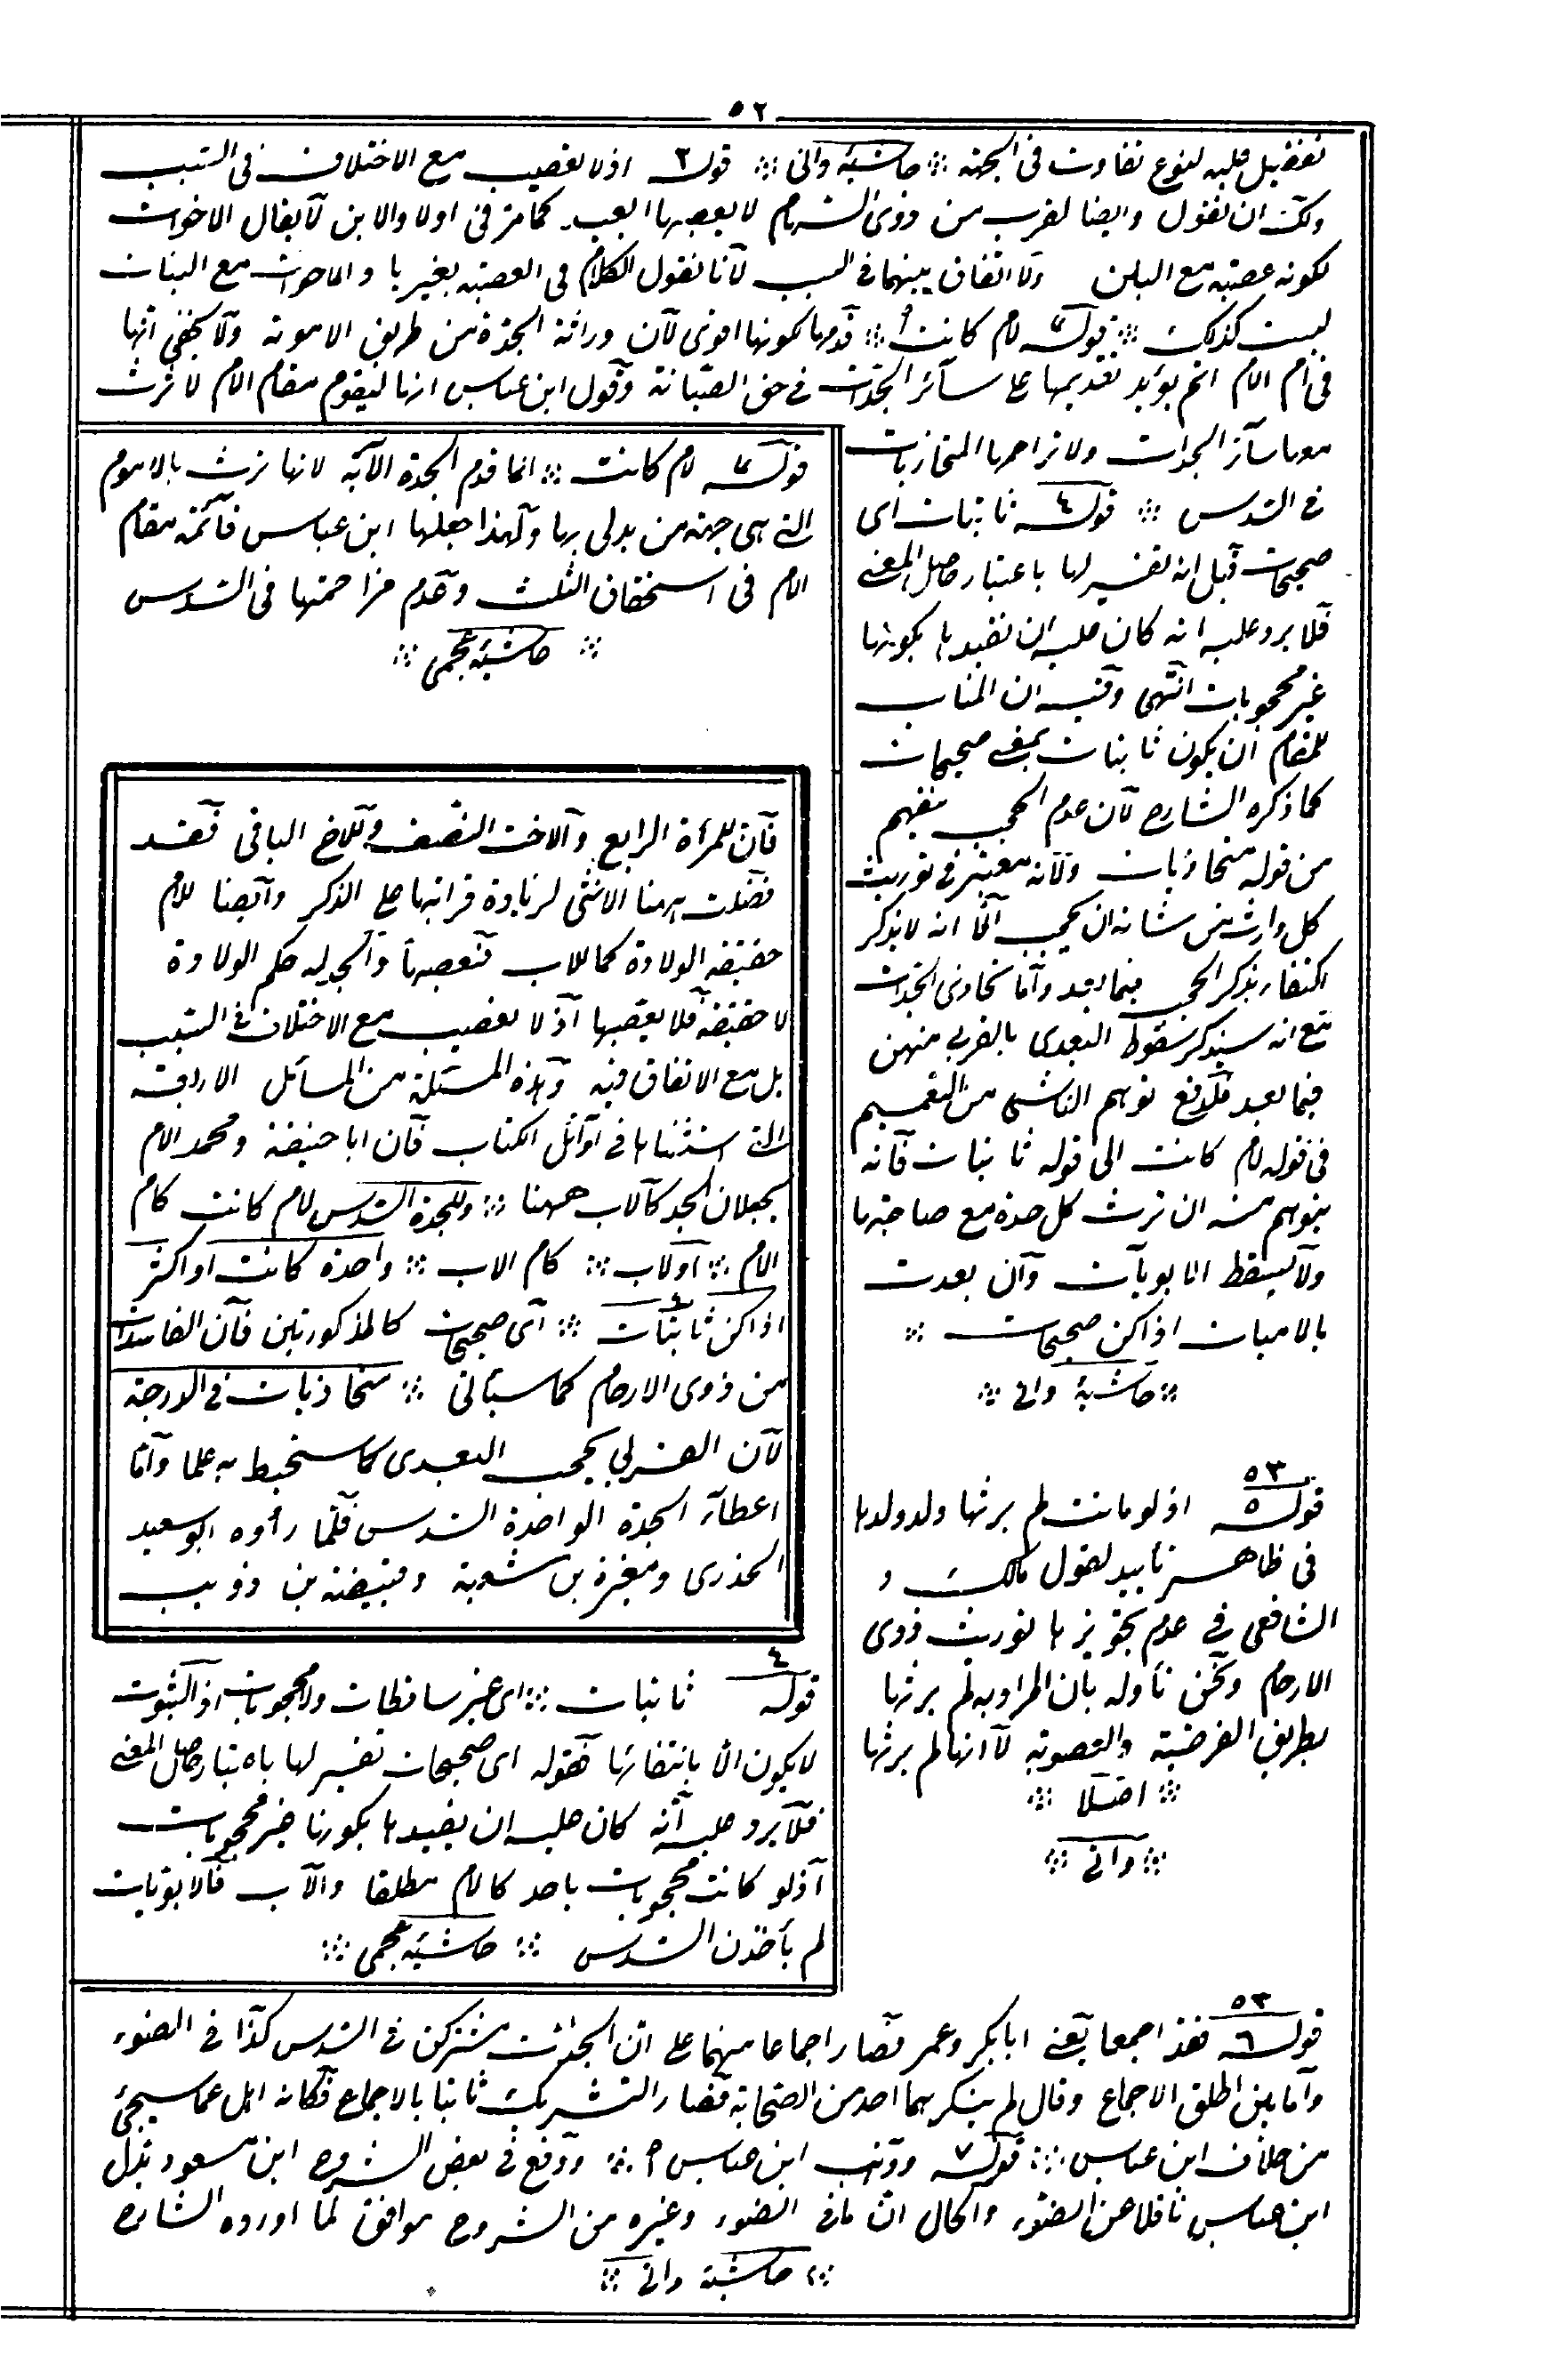 ٥٢
تفضيل عليه لنوع تفاوت فى الجهة ∴ حاشيۀ وانى ∴ قوله ٢ اذ لا تعصيب مع الاختلاف فى السبب
ولك ان تقول وايضا لقرب من ذوى السهام لا يعصبها ابعد كما مر فى اولا والابن لا يقال الاخوات
لكونه عصبة مع البنات ولا اتفاق بينهما فى السبب لانا نقول الكلام فى العصبة بغيرها والاخوات مع البنات
ليست كذلك ∴ قوله ٣ لام كانت ∴ قدمها لكونها اقوى لان وراثة الجدة من طريق الامومة ولا يخفى انها
فى ام الام اتم يؤيد تقديمها على سائر الجدات فى حق الحضانة وقول ابن عباس انها ليقوم مقام الام لا ترث
معها سائر الجدات ولا تزاحمها المتحاذيات
فى السدس ∴ قوله ٤ ثابتات اى
صحيحات قيل انه تفسير لها باعتبار حاصل المعنى
فلا يرد عليه انه كان عليه ان يقيدها بكونها
غير محجوبات انتهى وفيه ان المناسب
للمقام ان يكون ثابتات بمعنى صحيحات
كما ذكره الشارح لان عدم الحجب منفهم
من قوله متحاذيات ولانه معتبر فى توريث
كل وارث من شانه ان يحجب الا انه لا يذكر
اكتفاء بذكر الحجب فيما بعد واما تحاذى الجدات
مع انه سيذكر سقوط البعدى بالقربى منهن
فيما بعد فلدفع توهم الناشى من التعميم
فى قوله لام كانت الى قوله ثابتات فانه
يتوهم منه ان ترث كل جدة مع صاحبتها
ولا يسقط الابويات وان بعدت
بالاميات اذا كن صحيحات ∴
∴ حاشيۀ وانى ∴
٥٣
قوله ٥ اذ لو ماتت لم يرثها ولد ولدها
فى ظاهره تأييد لقول مالك و
الشافعى فى عدم تجويزها توريث ذوى
الارحام ونحن نأوله بان المراد به لم يرثها
بطريق الفرضية والعصوبة لا انها لم يرثها
∴ اصلا ∴
∴ وانى ∴
قوله ٣ لام كانت ∴ انما قدم الجدة الامية لانها ترث بالاموم
التى هى جهة من يدلى بها ولهذا جعلها ابن عباس قائمة مقام
الام فى استحقاق الثلث وعدم مزاحمتها فى السدس
∴ حاشيۀ عجمى ∴
فان للمرأة الرابع وللاخت النصف وللاخ الباقى فقد
فضلت ههنا الانثى لزيادة قرابتها على الذكر وايضا للام
حقيقة الولادة كما للاب فتعصبها والجد له حكم الولادة
لا حقيقة فلا يعصبها اذ لا تعصيب مع الاختلاف فى السبب
بل مع الاتفاق فيه وهذه المسئلة من المسائل الاربعة
التى استثناها فى اوائل الكتاب فان ابا حنيفة ومحمد الام
يجعلان الجد كالاب ههنا ∴ وللجدة السدس لام كانت كام
الام ∴ او لاب ∴ كام الاب ∴ واحدة كانت او اكثر
اذا كن ثابتات ∴ اى صحيحات كالمذكورتين فان الفاسدات
من ذوى الارحام كما سيأتى ∴ متحاذيات فى الدرجة
لان القربى يحجب البعدى كما ستحيط به علما واما
اعطاء الجدة الواحدة السدس فلما رواه ابو سعيد
الخدرى ومغيرة بن شعبة وقبيصة بن ذويب
قوله ٤ ثابتات ∴ اى غير ساقطات ولا محجوبات اذ الثبوت
لا يكون الا بانتفائها فقوله اى صحيحات تفسير لها باعتبار حاصل المعنى
فلا يرد عليه انه كان عليه ان يقيدها بكونها غير محجوبات
اذ لو كانت محجوبات باحد كالام مطلقا والاب فالابويات
لم يأخذن السدس ∴ حاشيۀ عجمى ∴
٥٣
قوله ٦ فقد اجمعا يعنى ابا بكر وعمر فصار اجماعا منهما على ان الجدات مشتركن فى السدس كذا فى الضوء
واما من اطلق الاجماع وقال لم ينكر بهما احد من الصحابة فصار التشريك ثابتا بالاجماع فكانه اهل عما سيجئ
من خلاف ابن عباس ∴ قوله ٧ وذهب ابن عباس ∴ ووقع فى بعض الشروح ابن مسعود بدل
ابن عباس ناقلا عن الضوء والحال ان ما فى الضوء وغيره من الشروح موافق لما اورده الشارح
∴ حاشيۀ وانى ∴